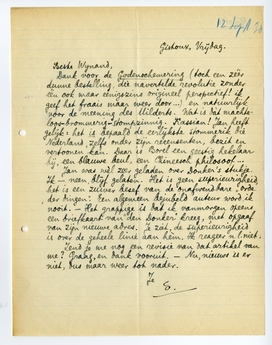 12 Sept 30
Gistoux, Vrijdag.
Beste Wijnand,
Dank voor de Godenschemering (toch een zéér
dunne bestelling, die navertelde revolutie zonder
een ook maar eenigszins origineel perspectief! ik
geef het fraais maar weer door...) en natuurlijk
voor de meening des Milderts. Wat is dat
loops-brommerig-stompzinnig. Kassian! Jan heeft
gelijk: het is bepaald de eerlijkste stommerik die
Nederland zelfs onder zijn recensenten, bezit en
vertoonen kan. Jaar is Borel een geestig hekelaar
bij, een blauwe heul, een Chineesch philosoof...
Jan was niet zeer geladen over Donker's stukje.
Ik — was blij gelaten. Het is geen superieurigheid,
het is een zuiver besef van de "onafwendbare" orde
der dingen: Een algemeen bejubeld auteur word ik
nooit. — Het grappige is dat ik vanmorgen opeens
een briefkaart van den Donker kreeg, met opgaaf
van zijn nieuwe adres. Je ziet, de superieurigheid
is over de geheele linie aan hem. Ik reageer n.l. niet.
Zend je me nog een revisie van dat artikel van
me? Graag, en dank vooruit. — Nu, nieuws is er
niet, dus maar weer tot nader.
Je
E.